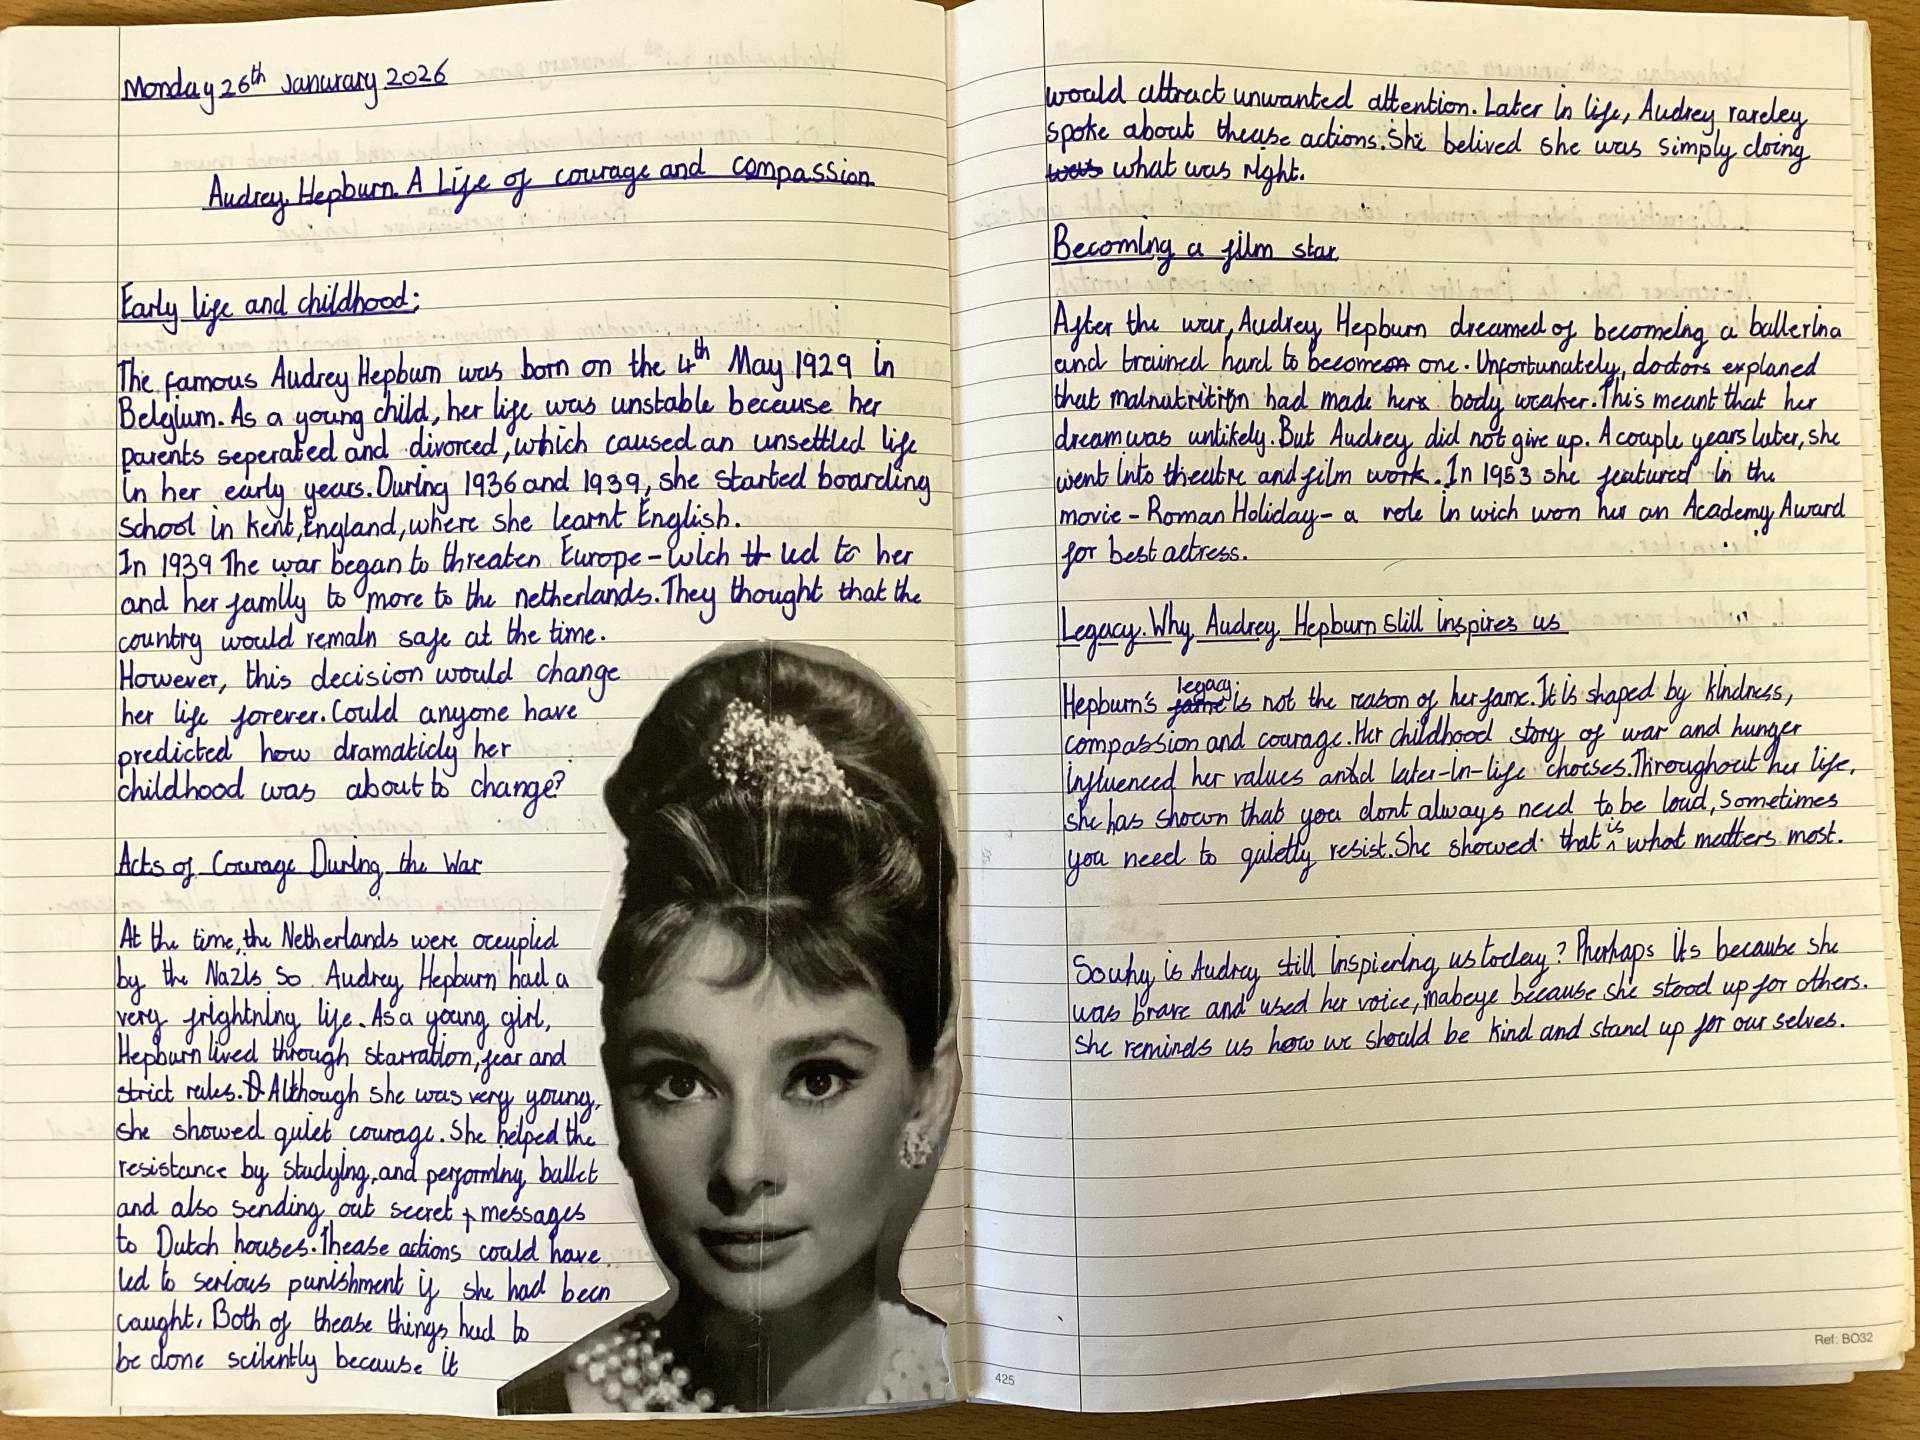 Monday 26th Janurary 2026
Audrey Hepburn. A Life of courage and compassion
Early life and childhood:
The famous Audrey Hepburn was born on the 4th May 1929 in
Belgium. As a young child, her life was unstable because her
parents seperated and divorced, which caused an unsettled life
in her early years. During 1936 and 1939, she started boarding
school in Kent, England, where she learnt English.
In 1939 The war began to threaten Europe - wich led to her
and her family to more to the netherlands. They thought that the
country would remain safe at the time.
However, this decision would change
her life forever. Could anyone have
predicted how dramaticly her
childhood was about to change?
Acts of Courage During the War
At the time, the Netherlands were occupied
by the Nazis so Audrey Hepburn had a
very frightning life. As a young girl,
Hepburn lived through starvation, fear and
strict rules. Although she was very young,
she showed quiet courage. She helped the
resistance by studying, and performing ballet
and also sending out secret messages
to Dutch houses. Thease actions could have
led to serious punishment if she had been
caught. Both of thease things had to
be done scilently because it
would attract unwanted attention. Later in life, Audrey rareley
spoke about thease actions. She belived she was simply doing
was what was right.
Becoming a film star
After the war, Audrey Hepburn dreamed of becomeing a ballerina
and trained hard to become one. Unfortunately, doctors explaned
that malnutrition had made her body weaker. This meant that her
dream was unlikely. But Audrey did not give up. A couple years later, she
went into theatre and film work. In 1953 she featured in the
movie - Roman Holiday - a role in wich won her an Academy Award
for best actress.
Legacy. Why Audrey Hepburn still inspires us
Hepburn's fame legacy is not the reason of her fame. It is shaped by kindness,
compassion and courage. Her childhood story of war and hunger
influenced her values and later-in-life choises. Throughout her life,
she has shown that you dont always need to be loud, sometimes
you need to quietly resist. She showed that is what matters most.
So why is Audrey still inspiering us today? Pherhaps its because she
was brave and used her voice, mabeye because she stood up for others.
She reminds us how we should be kind and stand up for our selves.
425
Ref: BO32